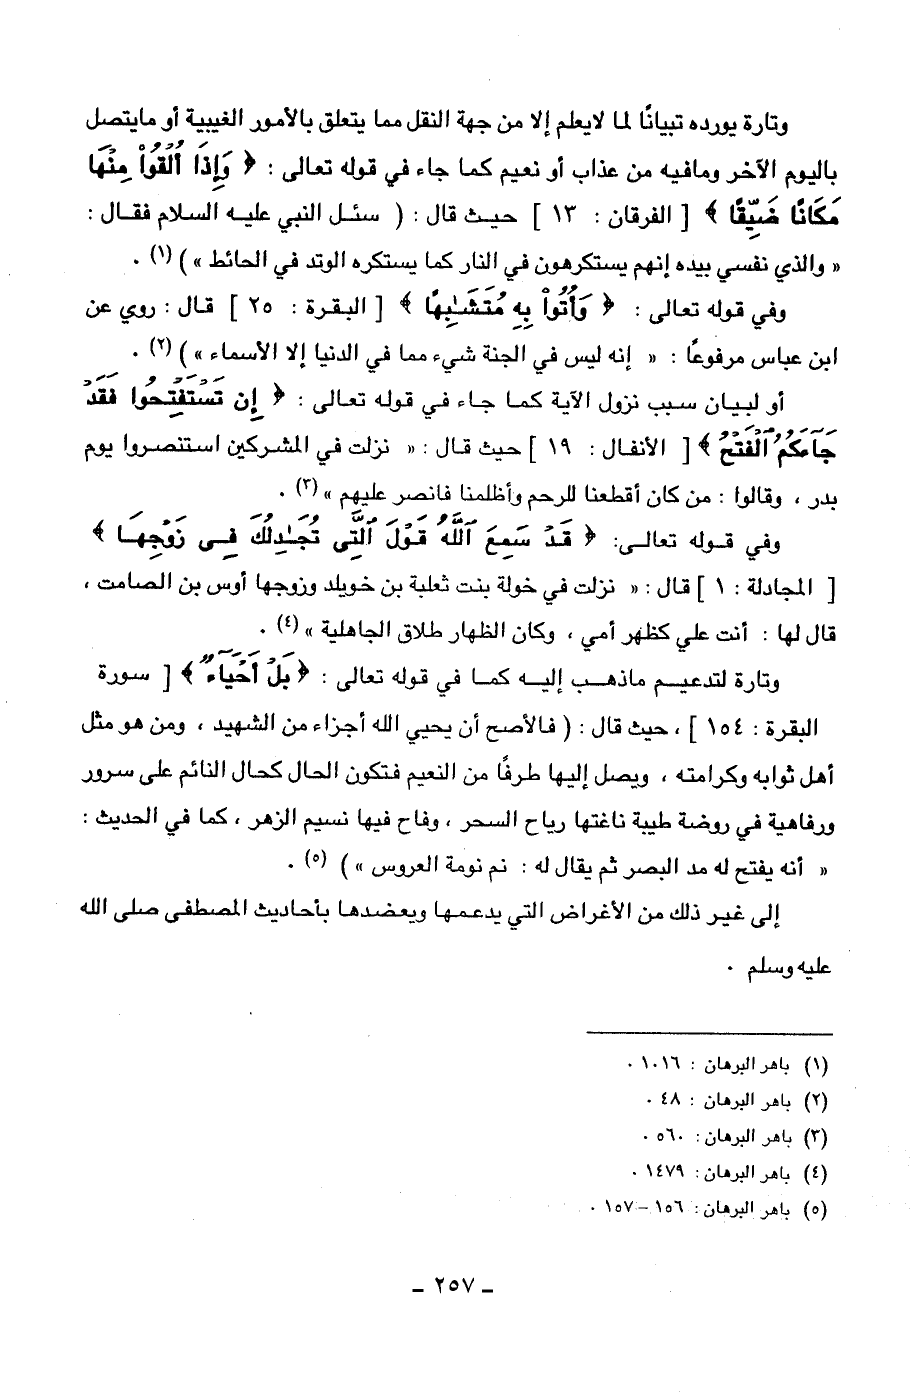 وتارة يورده تبيانًا لما لايعلم إلا من جهة النقل مما يتعلق بالأمور الغيبية أو مايتصل
باليوم الآخر ومافيه من عذاب أو نعيم كما جاء في قوله تعالى : ﴿ وَإِذَا أُلْقُوا۟ مِنْهَا
مَكَانًا ضَيِّقًا ﴾ [ الفرقان : ١٣ ] حيث قال : ( سئل النبي عليه السلام فقال :
« والذي نفسي بيده إنهم يستكرهون في النار كما يستكره الوتد في الحائط » ) (١) .
وفي قوله تعالى : ﴿ وَأُتُوا۟ بِهِ مُتَشَٰبِهًا ﴾ [ البقرة : ٢٥ ] قال : روي عن
ابن عباس مرفوعًا : « إنه ليس في الجنة شيء مما في الدنيا إلا الأسماء » ) (٢) .
أو لبيان سبب نزول الآية كما جاء في قوله تعالى : ﴿ إِن تَسْتَفْتِحُوا فَقَدْ
جَآءَكُمُ ٱلْفَتْحُ ﴾ [ الأنفال : ١٩ ] حيث قال : « نزلت في المشركين استنصروا يوم
بدر ، وقالوا : من كان أقطعنا للرحم وأظلمنا فانصر عليهم » (٣) .
وفي قوله تعالى: ﴿ قَدْ سَمِعَ ٱللَّهُ قَوْلَ ٱلَّتِى تُجَٰدِلُكَ فِى زَوْجِهَا ﴾
[ المجادلة : ١ ] قال : « نزلت في خولة بنت ثعلبة بن خويلد وزوجها أوس بن الصامت ،
قال لها : أنت علي كظهر أمي ، وكان الظهار طلاق الجاهلية » (٤) .
وتارة لتدعيم ماذهب إليه كما في قوله تعالى : ﴿ بَلْ أَحْيَآءٌ ﴾ [ سورة
البقرة : ١٥٤ ] ، حيث قال : ( فالأصح أن يحيي الله أجزاء من الشهيد ، ومن هو مثل
أهل ثوابه وكرامته ، ويصل إليها طرفًا من النعيم فتكون الحال كحال النائم على سرور
ورفاهية في روضة طيبة ناغتها رياح السحر ، وفاح فيها نسيم الزهر ، كما في الحديث :
« أنه يفتح له مد البصر ثم يقال له : نم نومة العروس » ) (٥) .
إلى غير ذلك من الأغراض التي يدعمها ويعضدها بأحاديث المصطفى صلى الله
عليه وسلم .
(١) باهر البرهان : ١٠١٦ .
(٢) باهر البرهان : ٤٨ .
(٣) باهر البرهان : ٥٦٠ .
(٤) باهر البرهان : ١٤٧٩ .
(٥) باهر البرهان : ١٥٦ – ١٥٧ .
ـ ٢٥٧ ـ